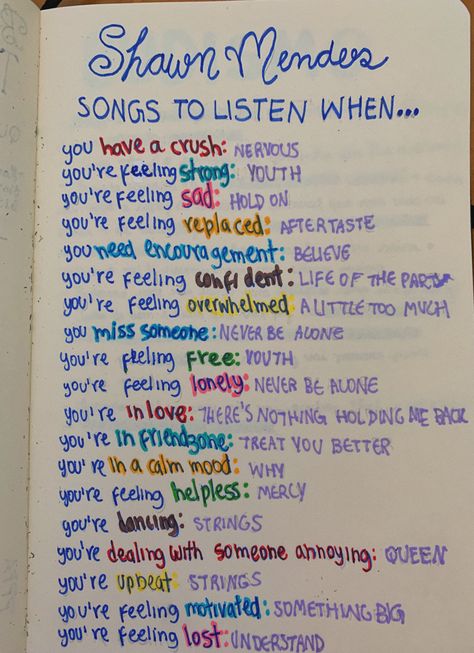 Shawn Mendes
SONGS TO LISTEN WHEN...
you have a crush: NERVOUS
you're feeling strong: YOUTH
you're feeling sad: HOLD ON
you're feeling replaced: AFTERTASTE
you need encouragement: BELIEVE
you're feeling confident: LIFE OF THE PARTY
you're feeling overwhelmed: A LITTLE TOO MUCH
you miss someone: NEVER BE ALONE
you're feeling free: YOUTH
you're feeling lonely: NEVER BE ALONE
you're in love: THERE'S NOTHING HOLDING ME BACK
you're in friendzone: TREAT YOU BETTER
you're in a calm mood: WHY
you're feeling helpless: MERCY
you're dancing: STRINGS
you're dealing with someone annoying: QUEEN
you're upbeat: STRINGS
you're feeling motivated: SOMETHING BIG
you're feeling lost: UNDERSTAND